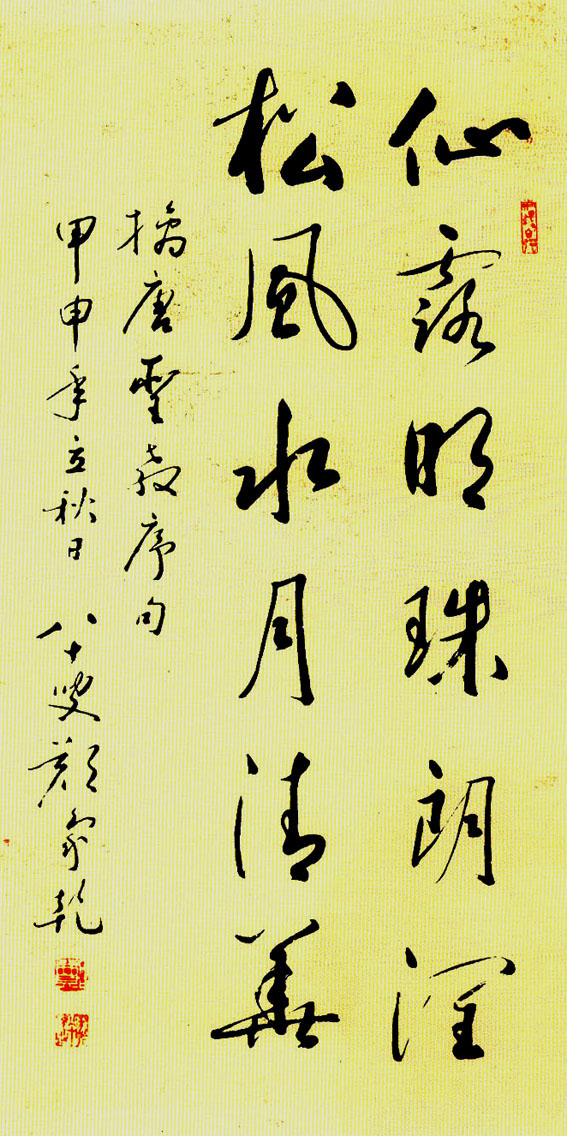 仙露明珠朗潤
松風水月清華
摘唐聖教序句
甲申年立秋日 八十叟顏象乾